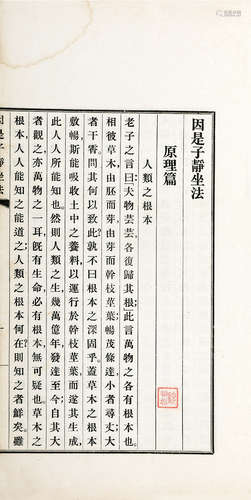 因是子靜坐法
原理篇
人類之根本
老子之言曰夫物芸芸各復歸其根此言萬物之各有根本也
相彼草木由胚而芽由芽而幹枝葉暢茂條達小者尋丈大
者干霄問其何以致此孰不曰根本之深固乎蓋草木之根本
敷暢斯能吸收土中之養料以運行於幹枝葉而遂其生成
此人人所能知也然則人類之生幾萬億年發達至今自其大
者觀之亦萬物之一耳旣有生命必有根本無可疑也草木之
根本人人能知之能道之人類之根本何在則知之者鮮矣雖
因是子靜坐法
一